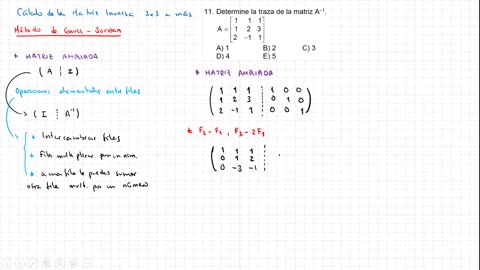 Cálculo de la Matriz Inversa 3x3 a más
Método de Gauss - Jordan
* MATRIZ AMPLIADA
( A ┆ I )
Operaciones elementales entre filas
( I ┆ A⁻¹ )
* Intercambiar filas
* Fila multiplicar por un núm.
* a una fila le puedes sumar
otra fila mult. por un número
11. Determine la traza de la matriz A⁻¹.
A = [ 1 1 1
1 2 3
2 −1 1 ]
A) 1 B) 2 C) 3
D) 4 E) 5
* MATRIZ AMPLIADA
( 1 1 1 ┆ 1 0 0
1 2 3 ┆ 0 1 0
2 -1 1 ┆ 0 0 1 )
* F₂ - F₁ , F₃ - 2F₁
( 1 1 1 ┆
0 1 2 ┆
0 -3 -1 ┆